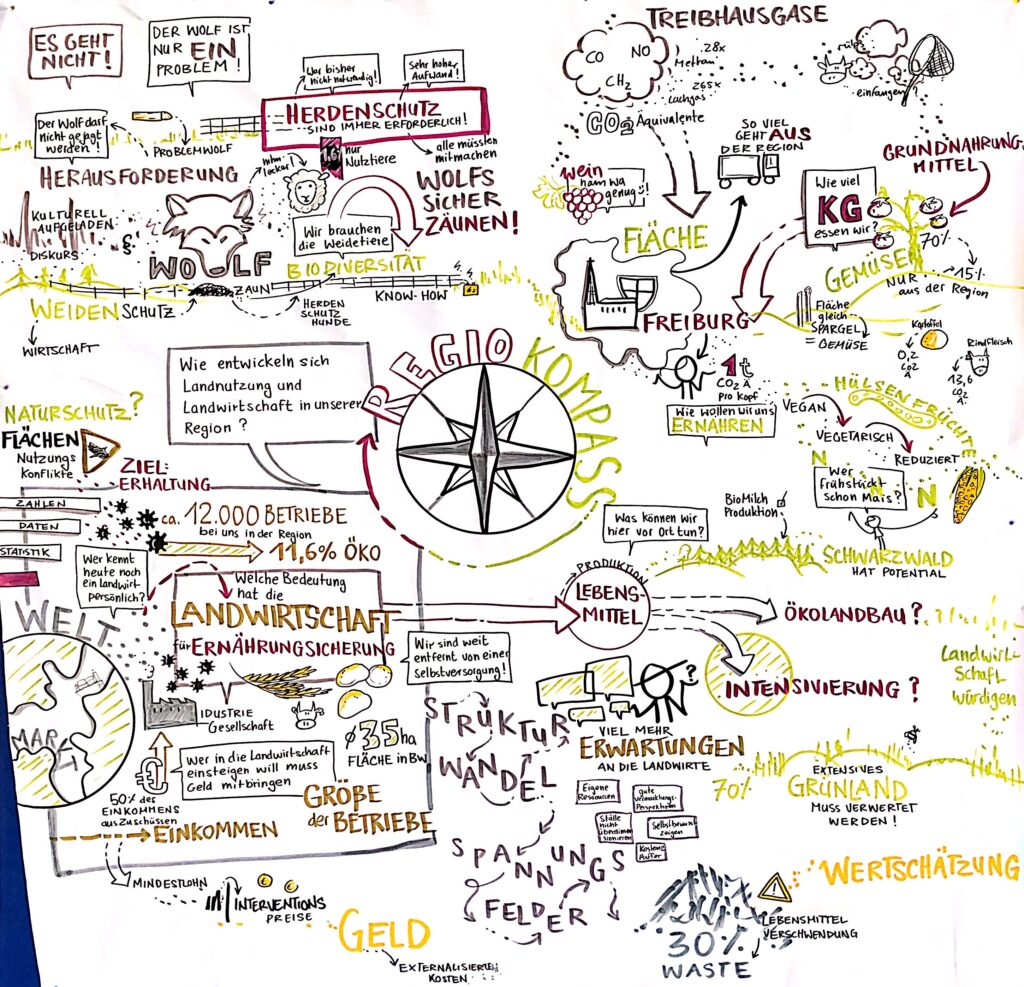 ES GEHT
NICHT!
DER WOLF IST
NUR EIN
PROBLEM!
War bisher
nicht notwendig!
Sehr hoher
Aufwand!
HERDENSCHUTZ
SIND IMMER ERFORDERLICH!
Der Wolf darf
nicht gejagt
werden!
PROBLEMWOLF
HERAUSFORDERUNG
mhm
lecker!
nur
Nutztiere
alle müssten
mitmachen
WOLFS
SICHER
ZÄUNEN!
KULTURELL
AUFGELADEN
DISKURS
§
WOLF
Wir brauchen
die Weidetiere
BIODIVERSITÄT
WEIDENSCHUTZ
ZAUN
HERDEN
SCHUTZ
HUNDE
KNOW-HOW
WIRTSCHAFT
TREIBHAUSGASE
CO
NO
CH2
28x
Methan
265x
Lachgas
CO2 Äquivalente
einfangen?
SO VIEL
GEHT AUS
DER REGION
wein
ham wa
genug!
FLÄCHE
FREIBURG
1t
CO2 Ä
Pro Kopf
Wie wollen wir uns
ERNÄHREN
GRUNDNAHRUNG
MITTEL
Wie viel
KG
essen wir?
70%
GEMÜSE
NUR 15%
aus der Region
Fläche
gleich
SPARGEL
= GEMÜSE
Kartoffel
0,2
CO2
Ä
Rindfleisch
13,6
CO2
Ä.
HÜLSENFRÜCHTE
VEGAN
VEGETARISCH
REDUZIERT
N
N
Wer
frühstückt
schon Mais?
REGIO KOMPASS
Wie entwickeln sich
Landnutzung und
Landwirtschaft in unserer
Region?
NATURSCHUTZ?
FLÄCHEN
Nutzungs
Konflikte
ZIEL:
ERHALTUNG
ZAHLEN
DATEN
STATISTIK
ca. 12.000 BETRIEBE
bei uns in der Region
11,6% ÖKO
Wer kennt
heute noch
ein Landwirt
persönlich?
Welche Bedeutung
hat die
LANDWIRTSCHAFT
für ERNÄHRUNGSICHERUNG
WELT
MARKT
IDUSTRIE
Gesellschaft
Wir sind weit
entfernt von einer
Selbstversorgung!
Ø 35 ha
FLÄCHE in BW
Wer in die Landwirtschaft
einsteigen will muss
Geld mitbringen
€
50% des
EINKOMMENS
aus Zuschüssen
GRÖßE
der BETRIEBE
EINKOMMEN
MINDESTLOHN
INTERVENTIONS
PREISE
GELD
EXTERNALISIERTEN
KOSTEN
Was können wir
hier vor Ort tun?
BioMilch
Produktion
SCHWARZWALD
HAT POTENTIAL
PRODUKTION
LEBENS-
MITTEL
ÖKOLANDBAU?
INTENSIVIERUNG?
Landwirt-
schaft
würdigen
?
VIEL MEHR
ERWARTUNGEN
AN DIE LANDWIRTE
STRUKTUR
WANDEL
Eigene
Ressourcen
gute
Ställe
nicht
überdimen
sionieren
zeigen
SPANNUNGS
FELDER
70%
EXTENSIVES
GRÜNLAND
MUSS VERWERTET
WERDEN!
WERTSCHÄTZUNG
!
LEBENSMITTEL
VERSCHWENDUNG
30%
WASTE